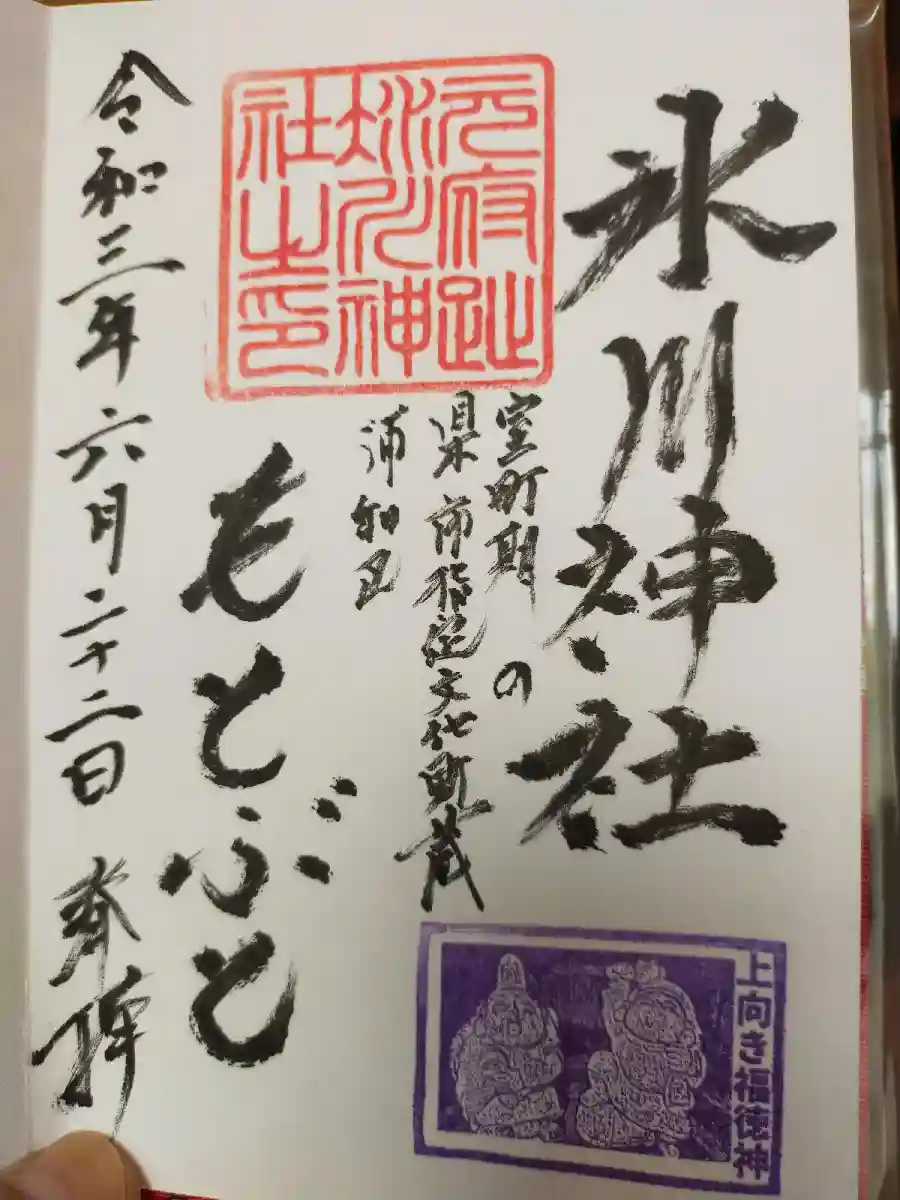 氷川神社
室町期の
県市指定文化財蔵
浦和区
元府趾
氷川神
社之印
もとぶと
令和三年六月二十二日 奉拝
上向き福徳神